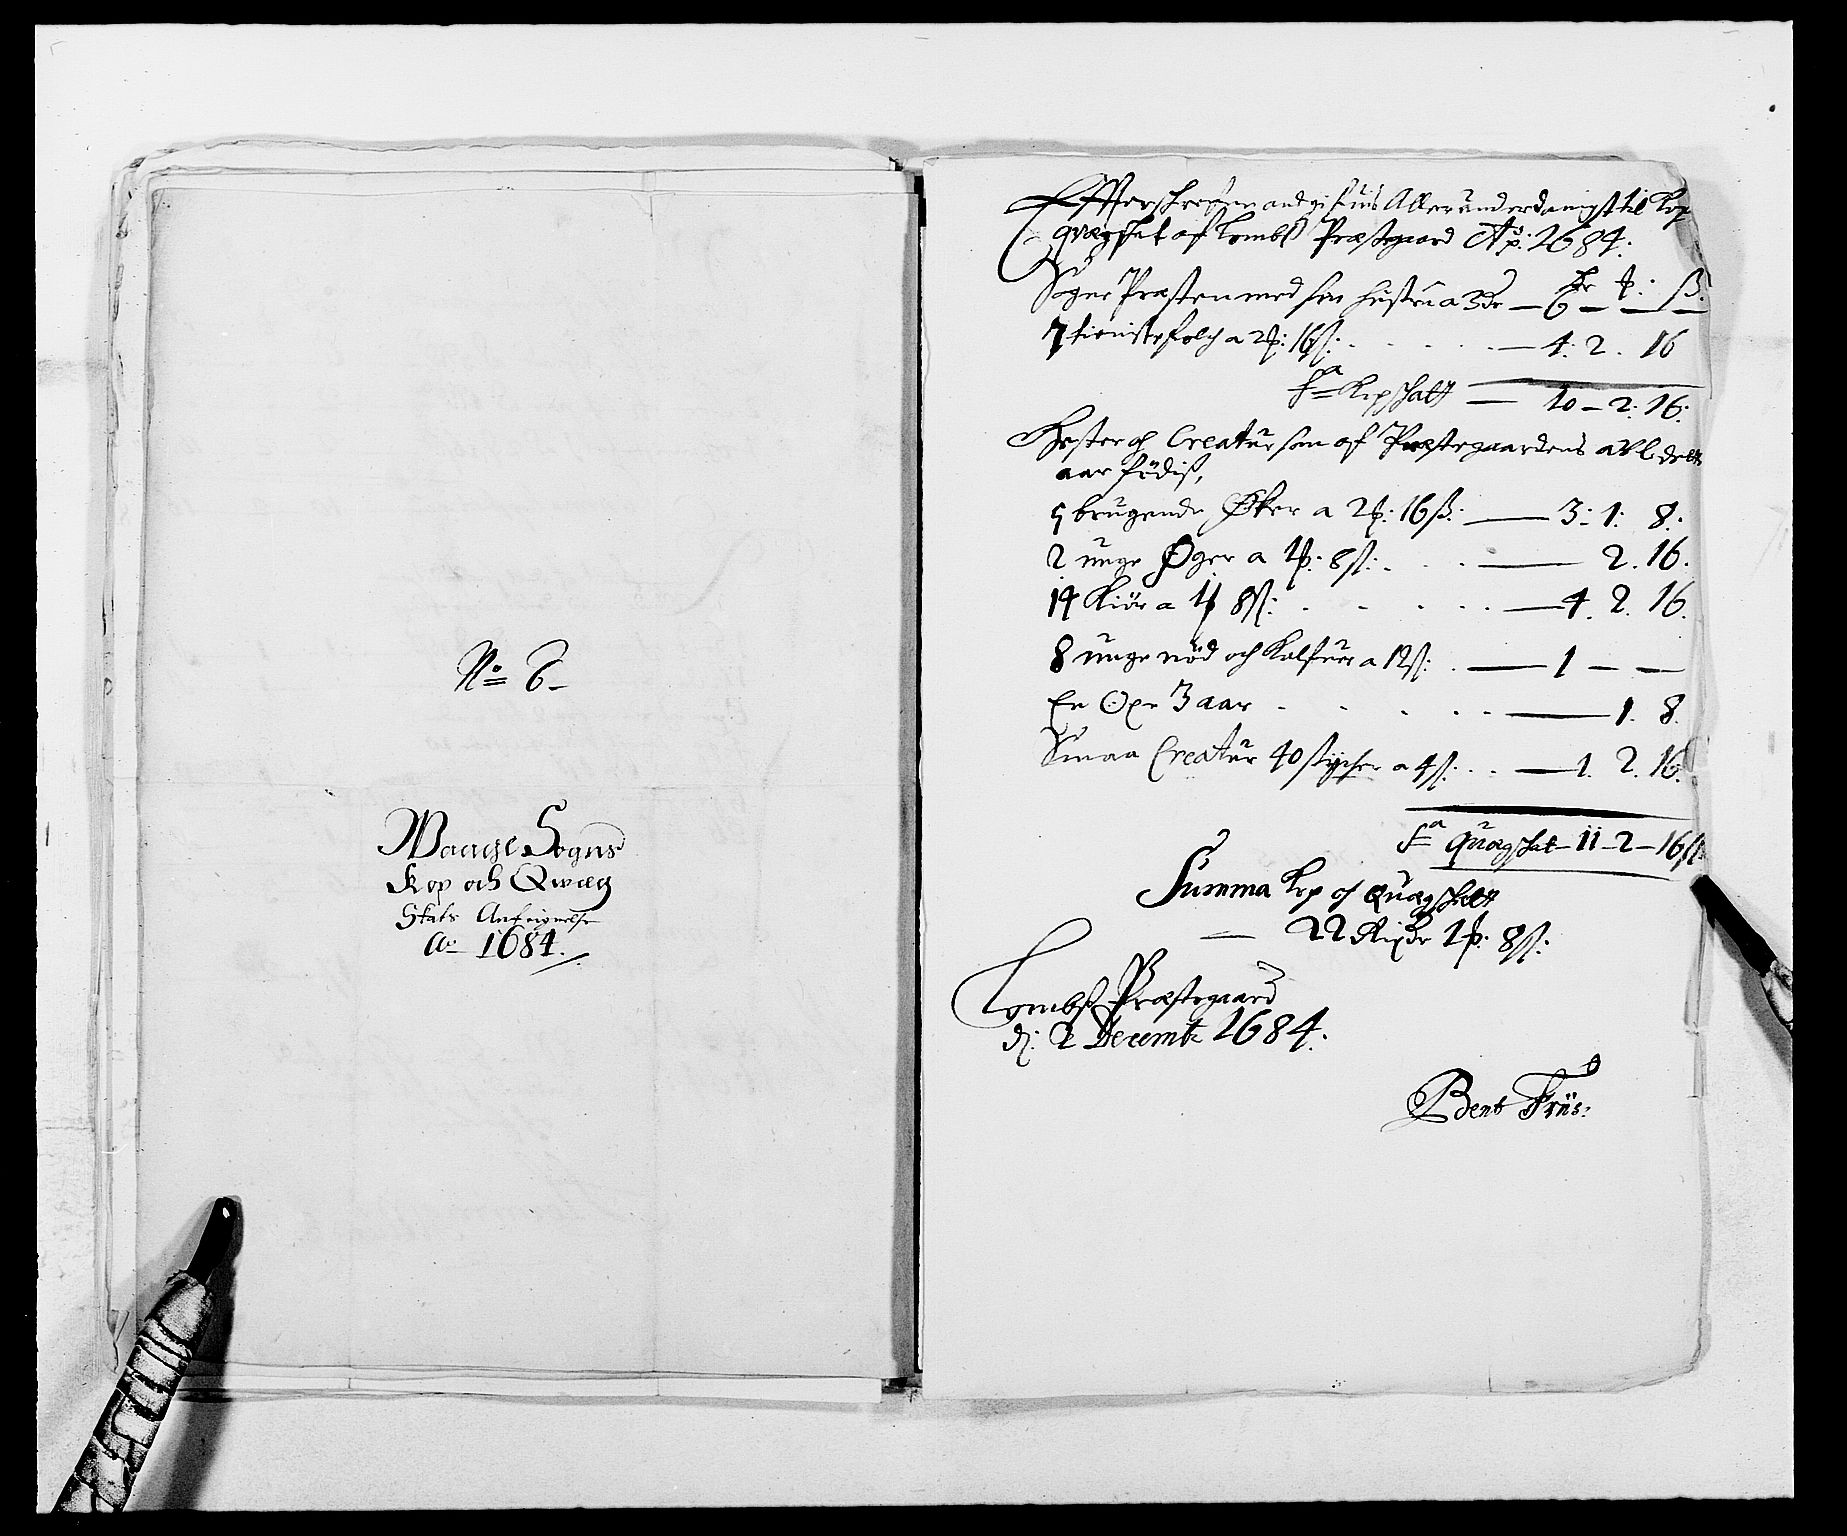 No 6
Waage Sogns
Kop och Qwæg
Skats Anteignelse
Ao 1684.
Effterschrefne andgifuis Allerunderdanigst til Kop
quægskat af Lombs Præstegaard Ao: 1684.
dr ƥ: ß.
Sogne Præsten med sin hustru a 3 dr — 6 — — —
7 tieniste folch a 2ƥ: 16ß: — 4: 2. 16
Sa Kopschatt — 10 — 2: 16:
Hester och Creatur som af Præstegaardens afl dette
aar födis,
5 brugende Øker a 2ƥ: 16ß: — 3: 1: 8:
2 unge Øger a 1ƥ: 8ß: — 2. 16.
14 Kiör a 1ƥ 8ß: — 4. 2. 16.
8 unge nöd och Kalfuer a 12ß: — 1 — —
En Oxe 3 aar — 1. 8.
Smaa Creatur 40 stycher a 4ß: — 1. 2. 16.
Sa quægskat — 11 — 2 — 16ß
Summa Kop och Quægschatt
— 22 Rixdr 1ƥ: 8ß:
Lombs Præstegaard
d: 2 Decemb: 1684.
Bent Friis: